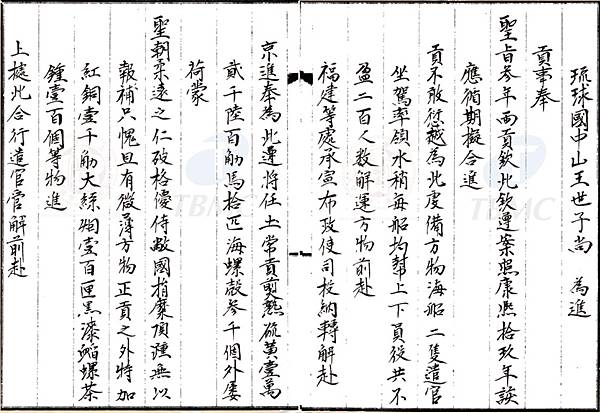 琉球國中山王世子尚　為進
貢事奉
聖旨參年兩貢欽此欽遵案照康熙拾玖年該
應循期擬合進
貢不敢愆越為此虔備方物海船二隻遣官
坐駕率領水稍每船均幫上下員役共不
盈二百人數解運方物前赴
福建等處承宣布政使司投納轉解赴
京進奉為此遵將任土常貢煎熟硫黃壹萬
貳千陸百觔馬拾匹海螺殼參千個外屢
荷蒙
聖朝柔遠之仁破格優待敝國指糜頂踵無以
報補只愧且有微薄方物正貢之外特加
紅銅壹千觔大絲烟壹百匣黑漆螺茶
鍾壹百個等物進
上據此合行遣官官解前赴
TBMC